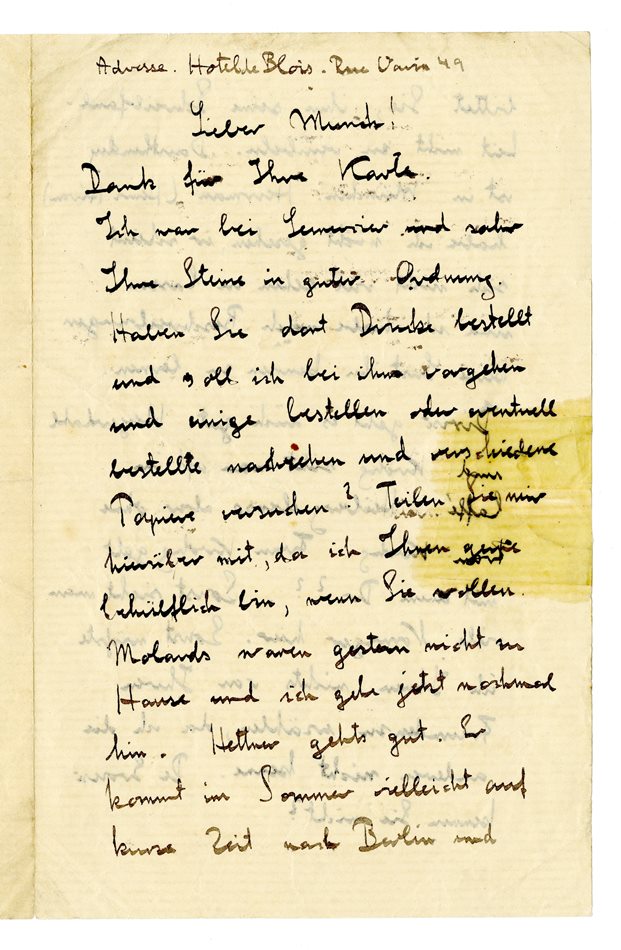 Adresse. Hotel de Blois. Rue Vavin 49
Lieber Munch!
Dank für Ihre Karte.
Ich war bei Lemercier und sah
Ihre Steine in guter Ordnung.
Haben Sie dort Drucke bestellt
und soll ich bei ihm vorgehen
und einige bestellen oder eventuell
bestellte nachsehen und verschiedene
Papiere versuchen? Teilen Sie mir
hierüber mit, da ich Ihnen gerne
behülflich bin, wenn Sie wollen.
Molards waren gestern nicht zu
Hause und ich gehe jetzt nochmal
hin. Hettner gehts gut. Er
kommt im Sommer vielleicht auf
kurze Zeit nach Berlin und